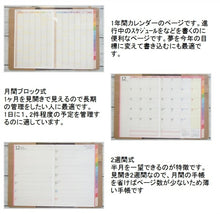 1年間カレンダーのページです。進
行中のスケジュールなどを書くのに
便利なページです。夢を今年の目
標に変えて書き込むにも最適で
す。
月間ブロック式
1ヶ月を見開きで見えるので長期
の管理をしたい人に最適です。
1日に1、2件程度の予定を管理す
るのに適しています。
12
12
2週間式
半月を一望できるのが特徴です。
見開き2週間なので、月間の手帳
を省けばページ数が少ないため薄
い手帳です